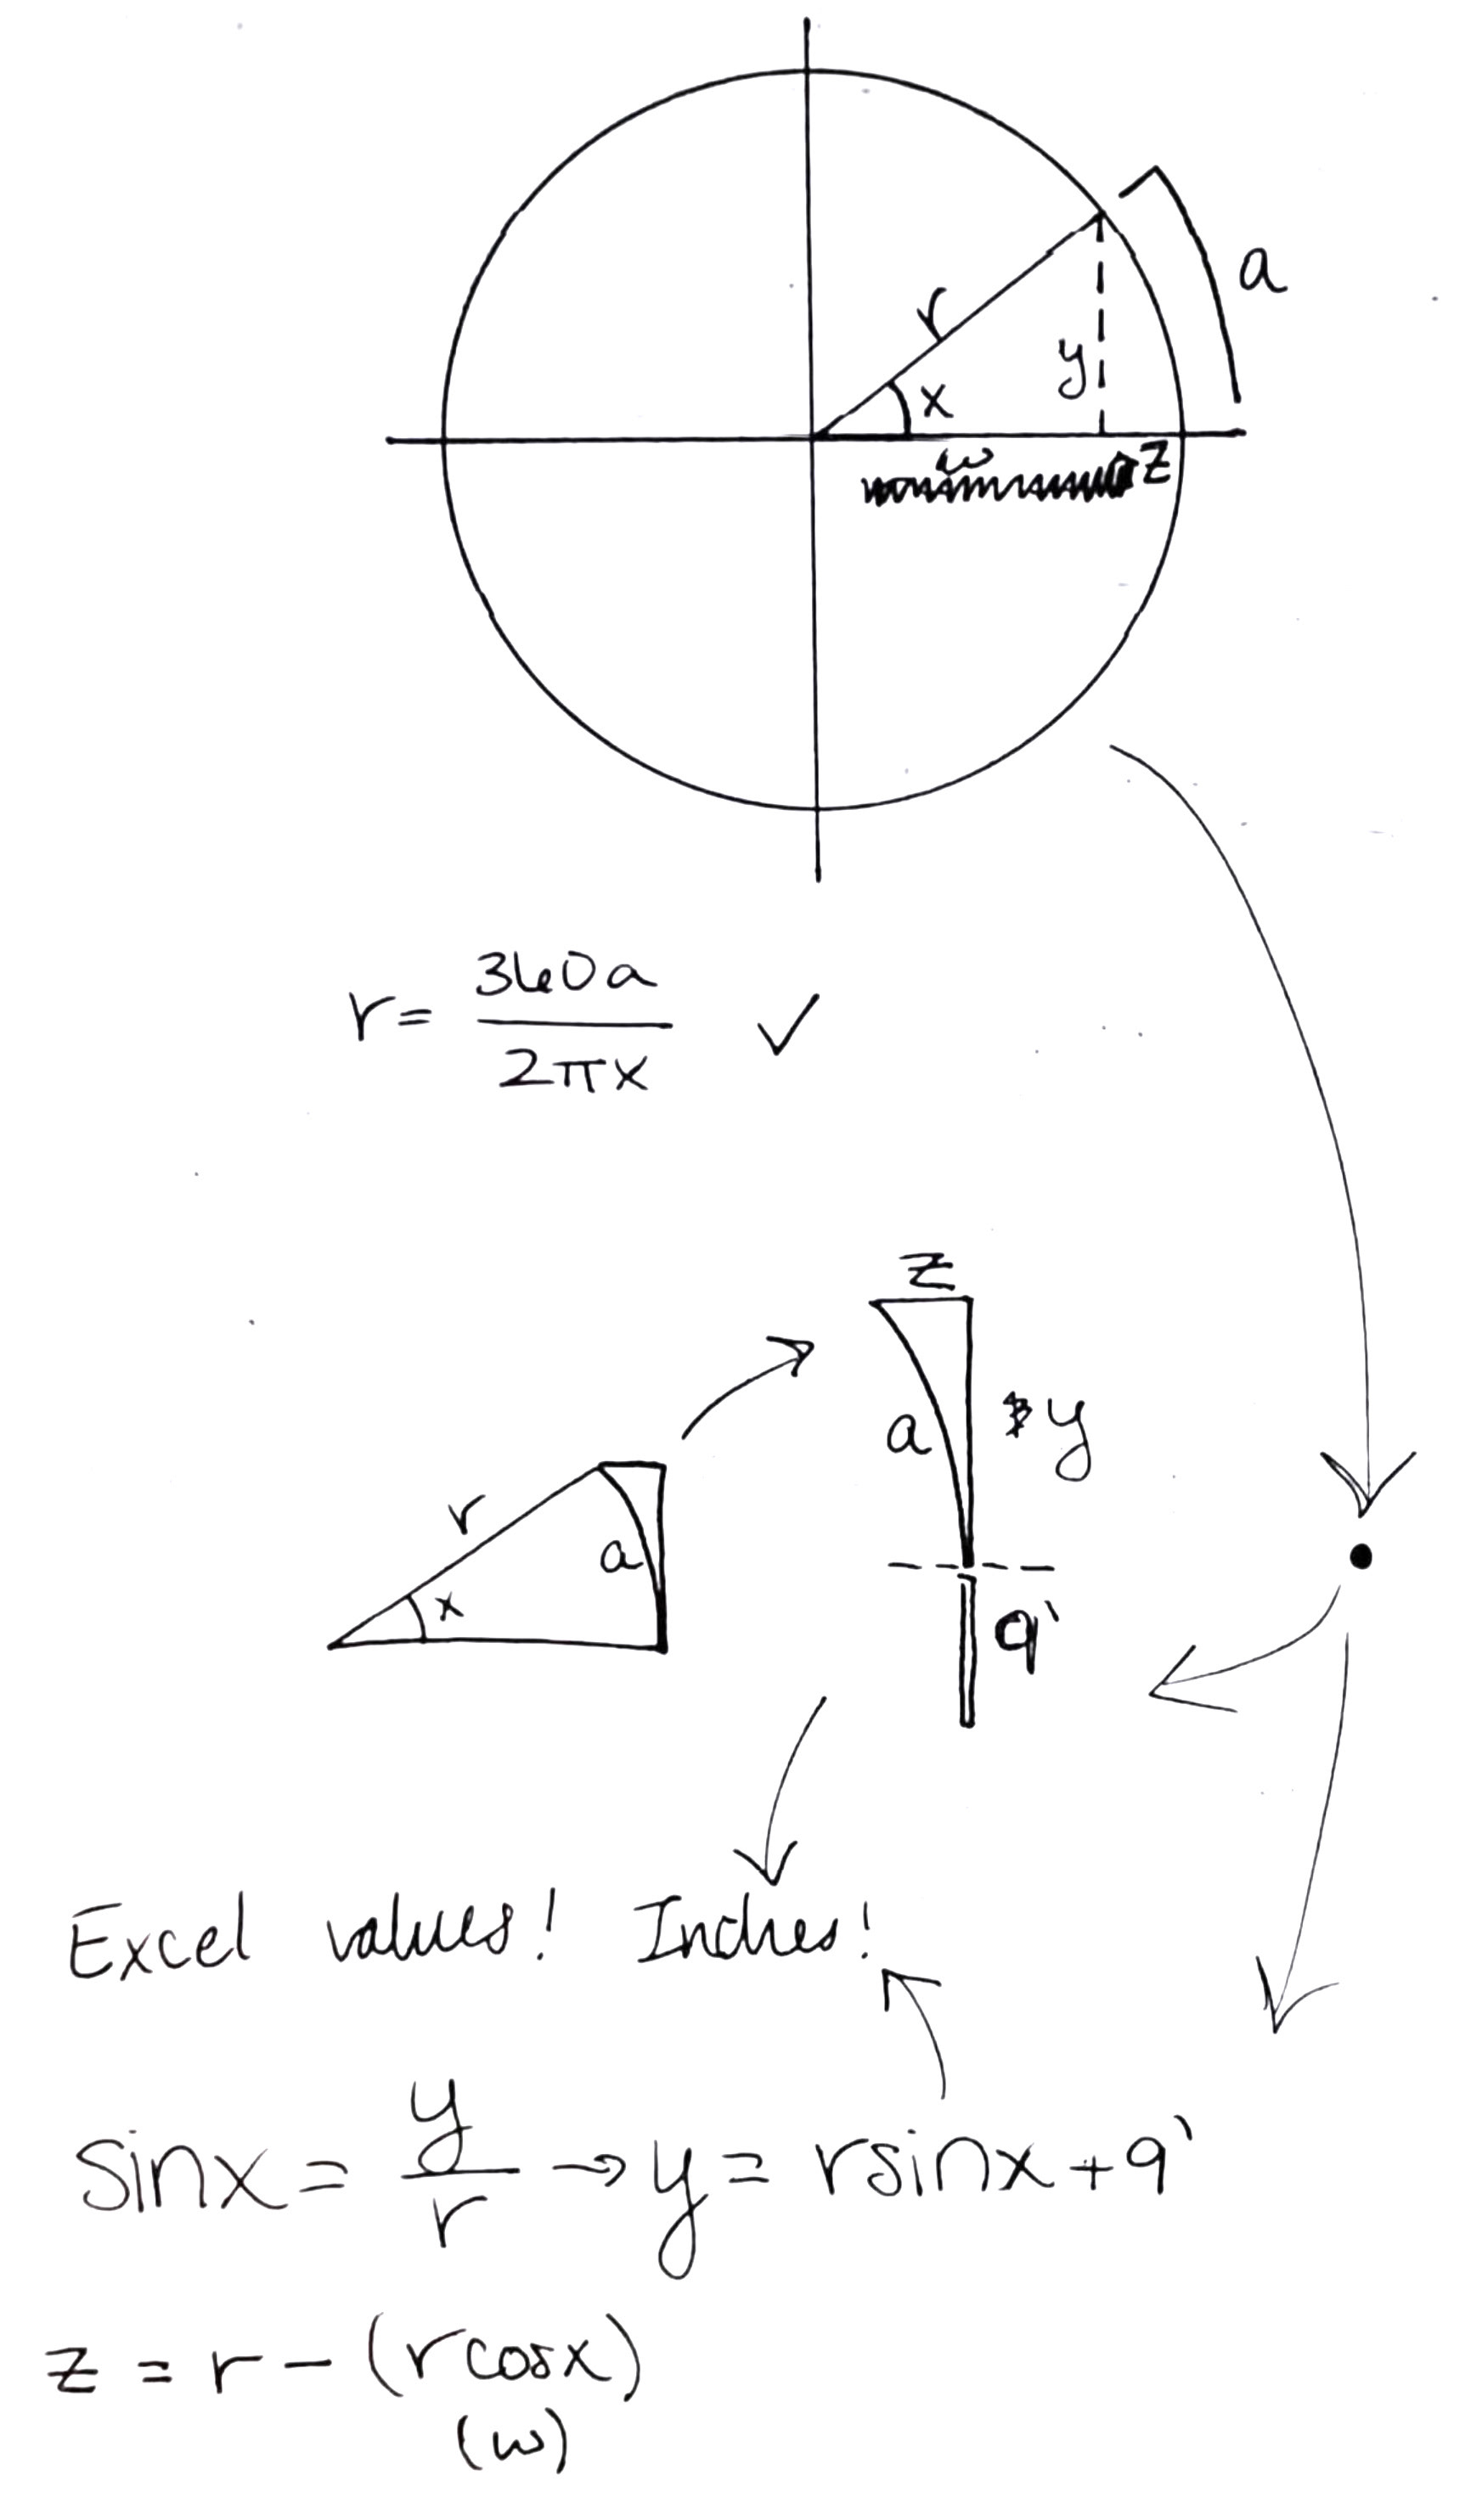 a
r
y
x
w
z
r = 360a / 2πx ✓
z
a
y
r
a
x
9'
Excel values! Inches!
sin x = y/r → y = r sin x + 9'
z = r - (r cos x)
(w)